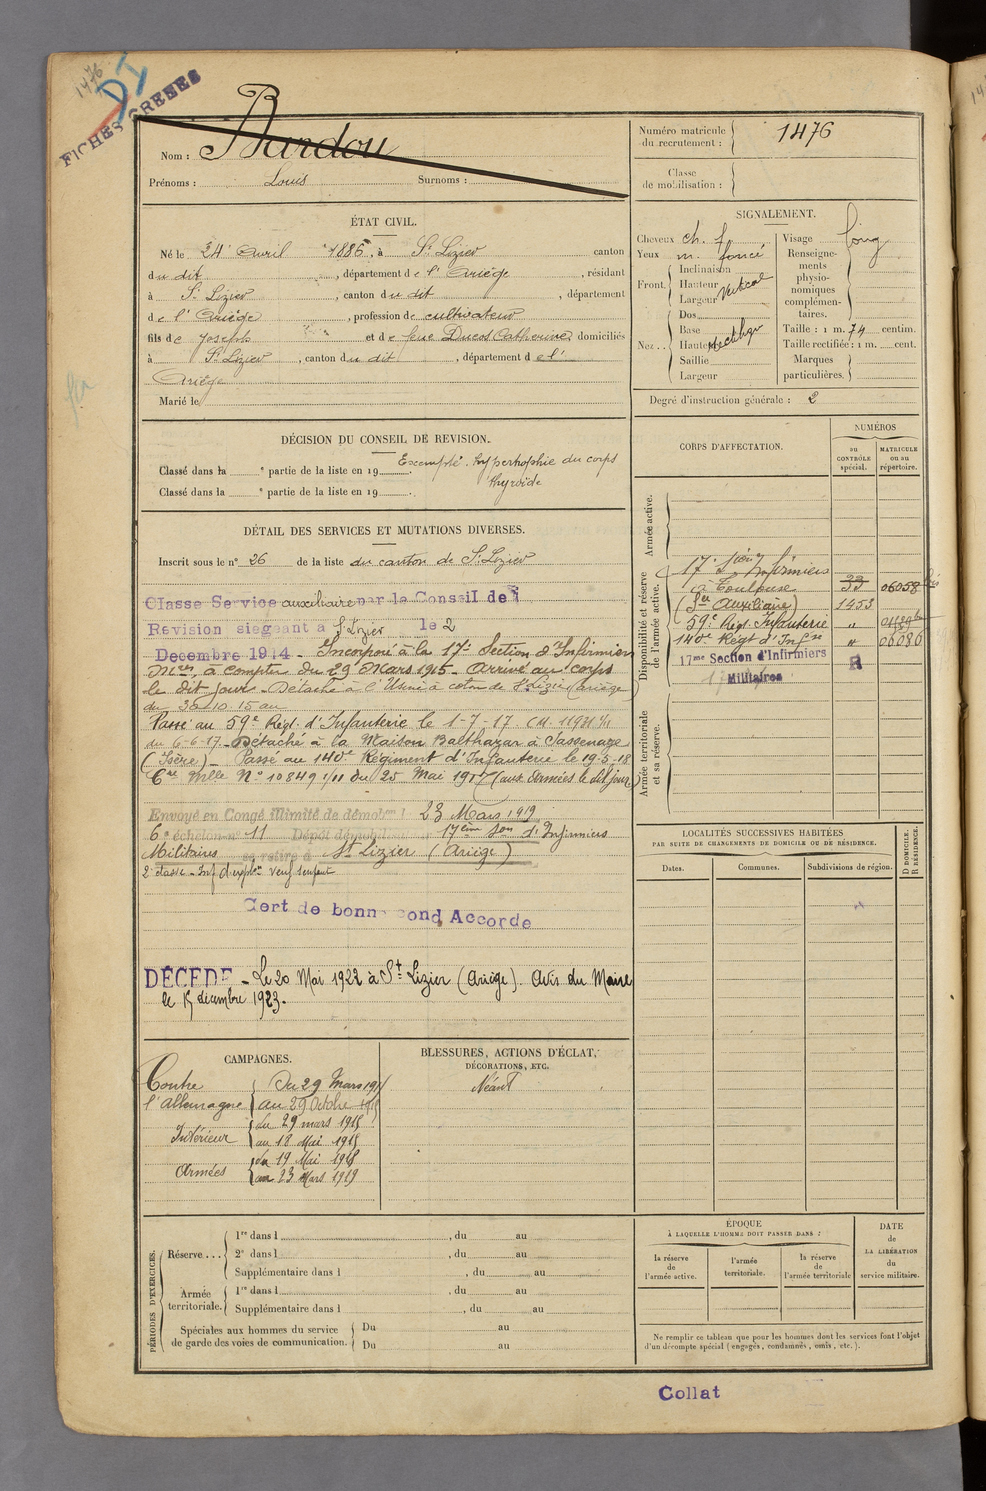 1476
DI
FICHES CREEES
Nom : Bardou
Prénoms : Louis Surnoms :
Numéro matricule du recrutement : 1476
Classe de mobilisation :
ÉTAT CIVIL.
Né le 24 Avril 1886, à St Lizier canton
du dit, département de l'Ariège, résidant
à St Lizier, canton du dit, département
de l'Ariège, profession de cultivateur
fils de Joseph et de feue Ducos Catherine domiciliés
à St Lizier, canton du dit, département de l'
Ariège
Marié le
SIGNALEMENT.
Cheveux ch. f
Yeux m. foncé
Front Inclinaison
Hauteur
Largeur Vertical
Nez Dos
Base
Hauteur Rectiligne
Saillie
Largeur
Visage long
Renseignements physionomiques complémentaires.
Taille : 1 m. 74 centim.
Taille rectifiée : 1 m. cent.
Marques particulières.
Degré d'instruction générale : 2
DÉCISION DU CONSEIL DE REVISION.
Classé dans la e partie de la liste en 19 Exempté. hypertrophie du corps
thyroïde
Classé dans la e partie de la liste en 19
DÉTAIL DES SERVICES ET MUTATIONS DIVERSES.
Inscrit sous le n° 26 de la liste du canton de St Lizier
Classe Service auxiliaire par le Conseil de
Revision siegeant a St Lizier le 2
Decembre 1914 - Incorporé à la 17e Section d'Infirmiers
Mres, à compter du 29 Mars 1915. Arrivé au corps
le dit jour. Détaché à l'Usine à coton de St Lizier (Ariège)
du 30.10.15 au
Passé au 59e Régt. d'Infanterie le 1-7-17 CM. 11931 1/11
du 6-6-17. Détaché à la Maison Balthazar à Sassenage
(Isère) - Passé au 140e Régiment d'Infanterie le 19-5-18
Cre Mlle N° 10849 1/11 du 25 Mai 1917 (aux Armées le dit jour)
Envoyé en Congé illimité de démobon 23 Mars 1919
6e échelon n° 11 Dépôt démobilisateur 17ème Son d'Infirmiers
Militaires se retire à St Lizier (Ariège)
Cert de bonne cond Accorde
DÉCÉDÉ - Le 20 Mai 1922 à St Lizier (Ariège). Avis du Maire
le 15 décembre 1923.
CORPS D'AFFECTATION.
NUMÉROS
au CONTRÔLE spécial.
MATRICULE ou au répertoire.
Armée active.
Disponibilité et réserve de l'armée active.
17e Son Infirmiers
à Toulouse 33 06058 bis
(Sce Auxiliaire) 1453
59e Régt. Infanterie "
140e Régt d'Infie " 06086
17me Section d'Infirmiers
Militaires R
Armée territoriale et sa réserve.
LOCALITÉS SUCCESSIVES HABITÉES
PAR SUITE DE CHANGEMENTS DE DOMICILE OU DE RÉSIDENCE.
Dates. Communes. Subdivisions de région. D DOMICILE. R RÉSIDENCE.
CAMPAGNES.
Contre l'Allemagne Du 29 Mars 1915
au 29 Octobre 1915
Intérieur du 29 mars 1915
au 18 Mai 1918
Armées du 19 Mai 1918
au 23 Mars 1919
BLESSURES, ACTIONS D'ÉCLAT,
DÉCORATIONS, ETC.
Néant
PÉRIODES D'EXERCICES.
Réserve... 1re dans l , du au
2e dans l , du au
Supplémentaire dans l , du au
Armée territoriale. 1re dans l , du au
Supplémentaire dans l , du au
Spéciales aux hommes du service de garde des voies de communication. Du au
Du au
ÉPOQUE
À LAQUELLE L'HOMME DOIT PASSER DANS :
la réserve de l'armée active.
l'armée territoriale.
la réserve de l'armée territoriale
DATE
de
LA LIBÉRATION
du
service militaire.
Ne remplir ce tableau que pour les hommes dont les services font l'objet
d'un décompte spécial (engagés, condamnés, omis, etc.).
Collat